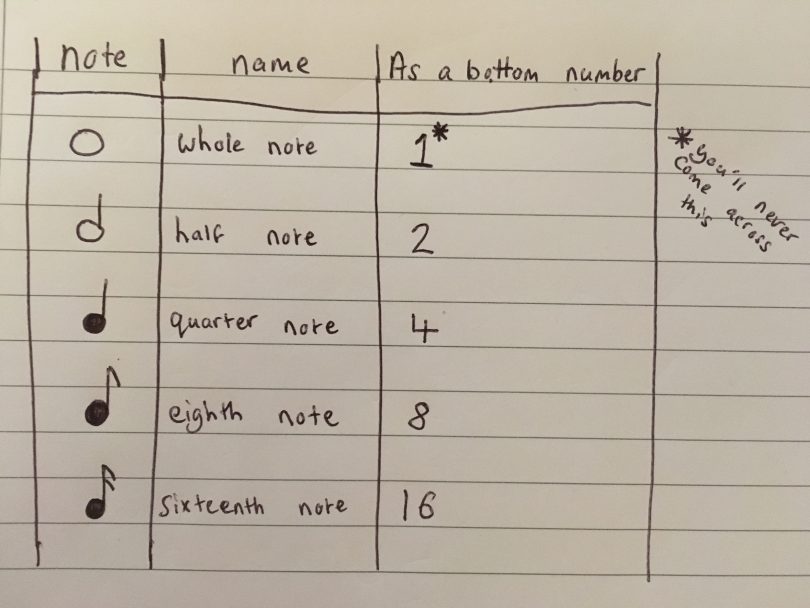 note name As a bottom number
whole note 1*
half note 2
quarter note 4
eighth note 8
sixteenth note 16
* you'll never
come across
this